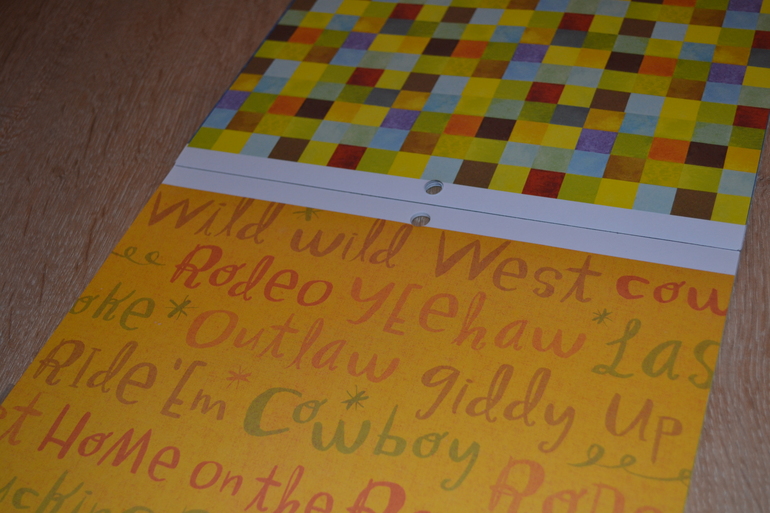 Wild wild West cow
Rodeo YEehaw Las
oke Outlaw giddy Up
Ride 'Em Cowboy
Home on the R
ucking Rode